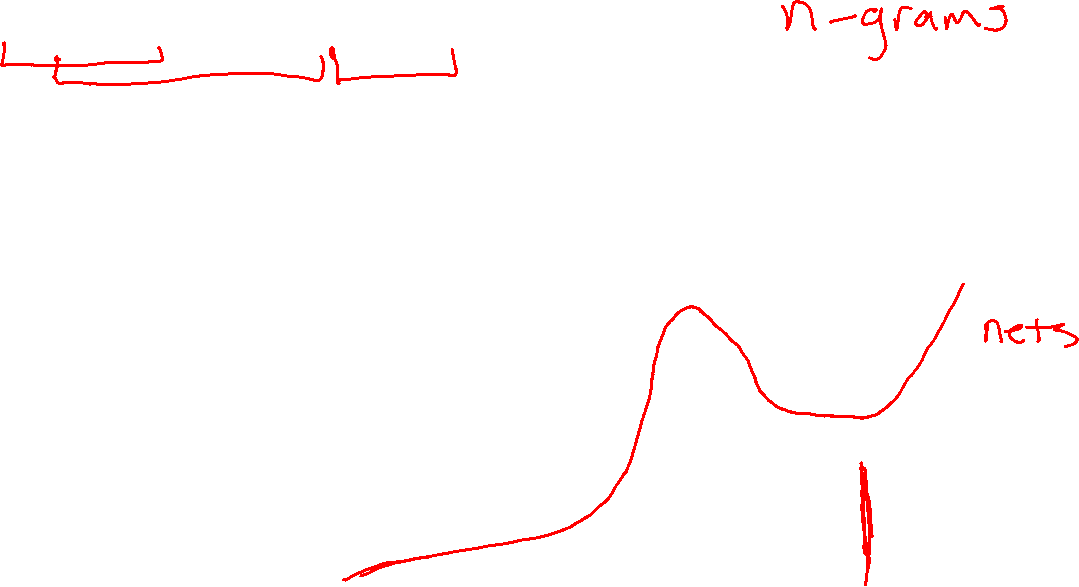 n-grams
nets